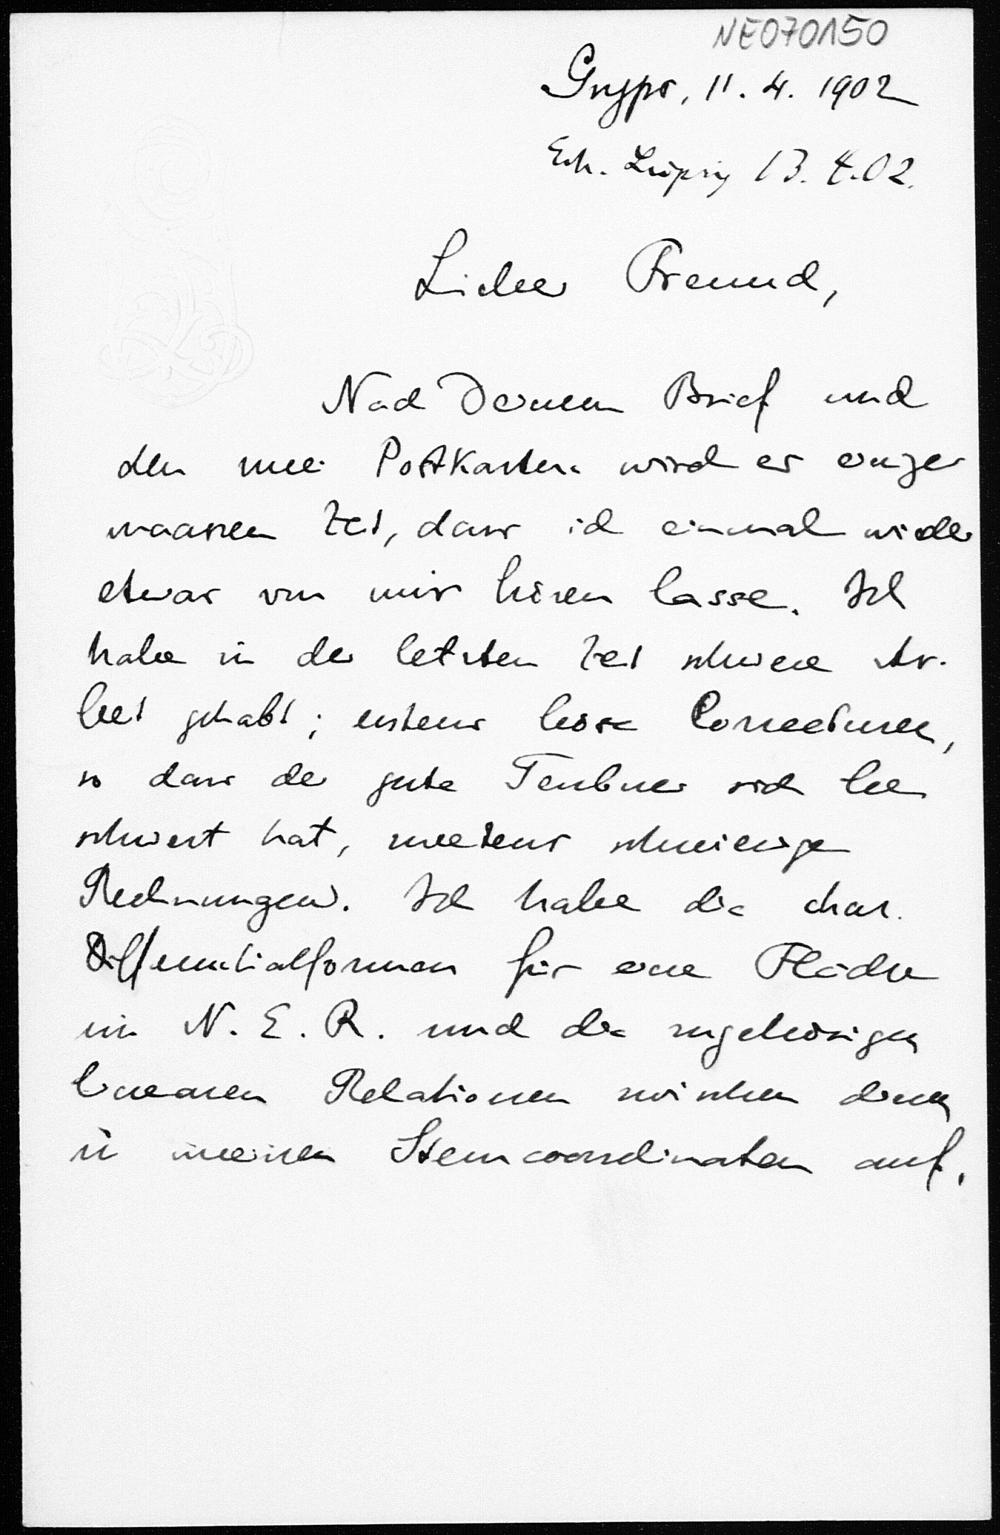 NE070150
Gryps, 11. 4. 1902
Erh. Leipzig 13. 4. 02.
Lieber Freund,
Nach Deinem Brief und
den zwei Postkarten wird es einiger
maassen Zeit, dass ich einmal wieder
etwas von mir hören lasse. Ich
habe in der letzten Zeit schwere Ar-
beit gehabt; erstens böse Correcturen,
so dass der gute Teubner sich be
schwert hat, zweitens schwierige
Rechnungen. Ich habe die char.
Differentialformen für eine Fläche
im N. E. R. und die zugehörigen
linearen Relationen zwischen denen
in meinen Liniencoordinaten auf.